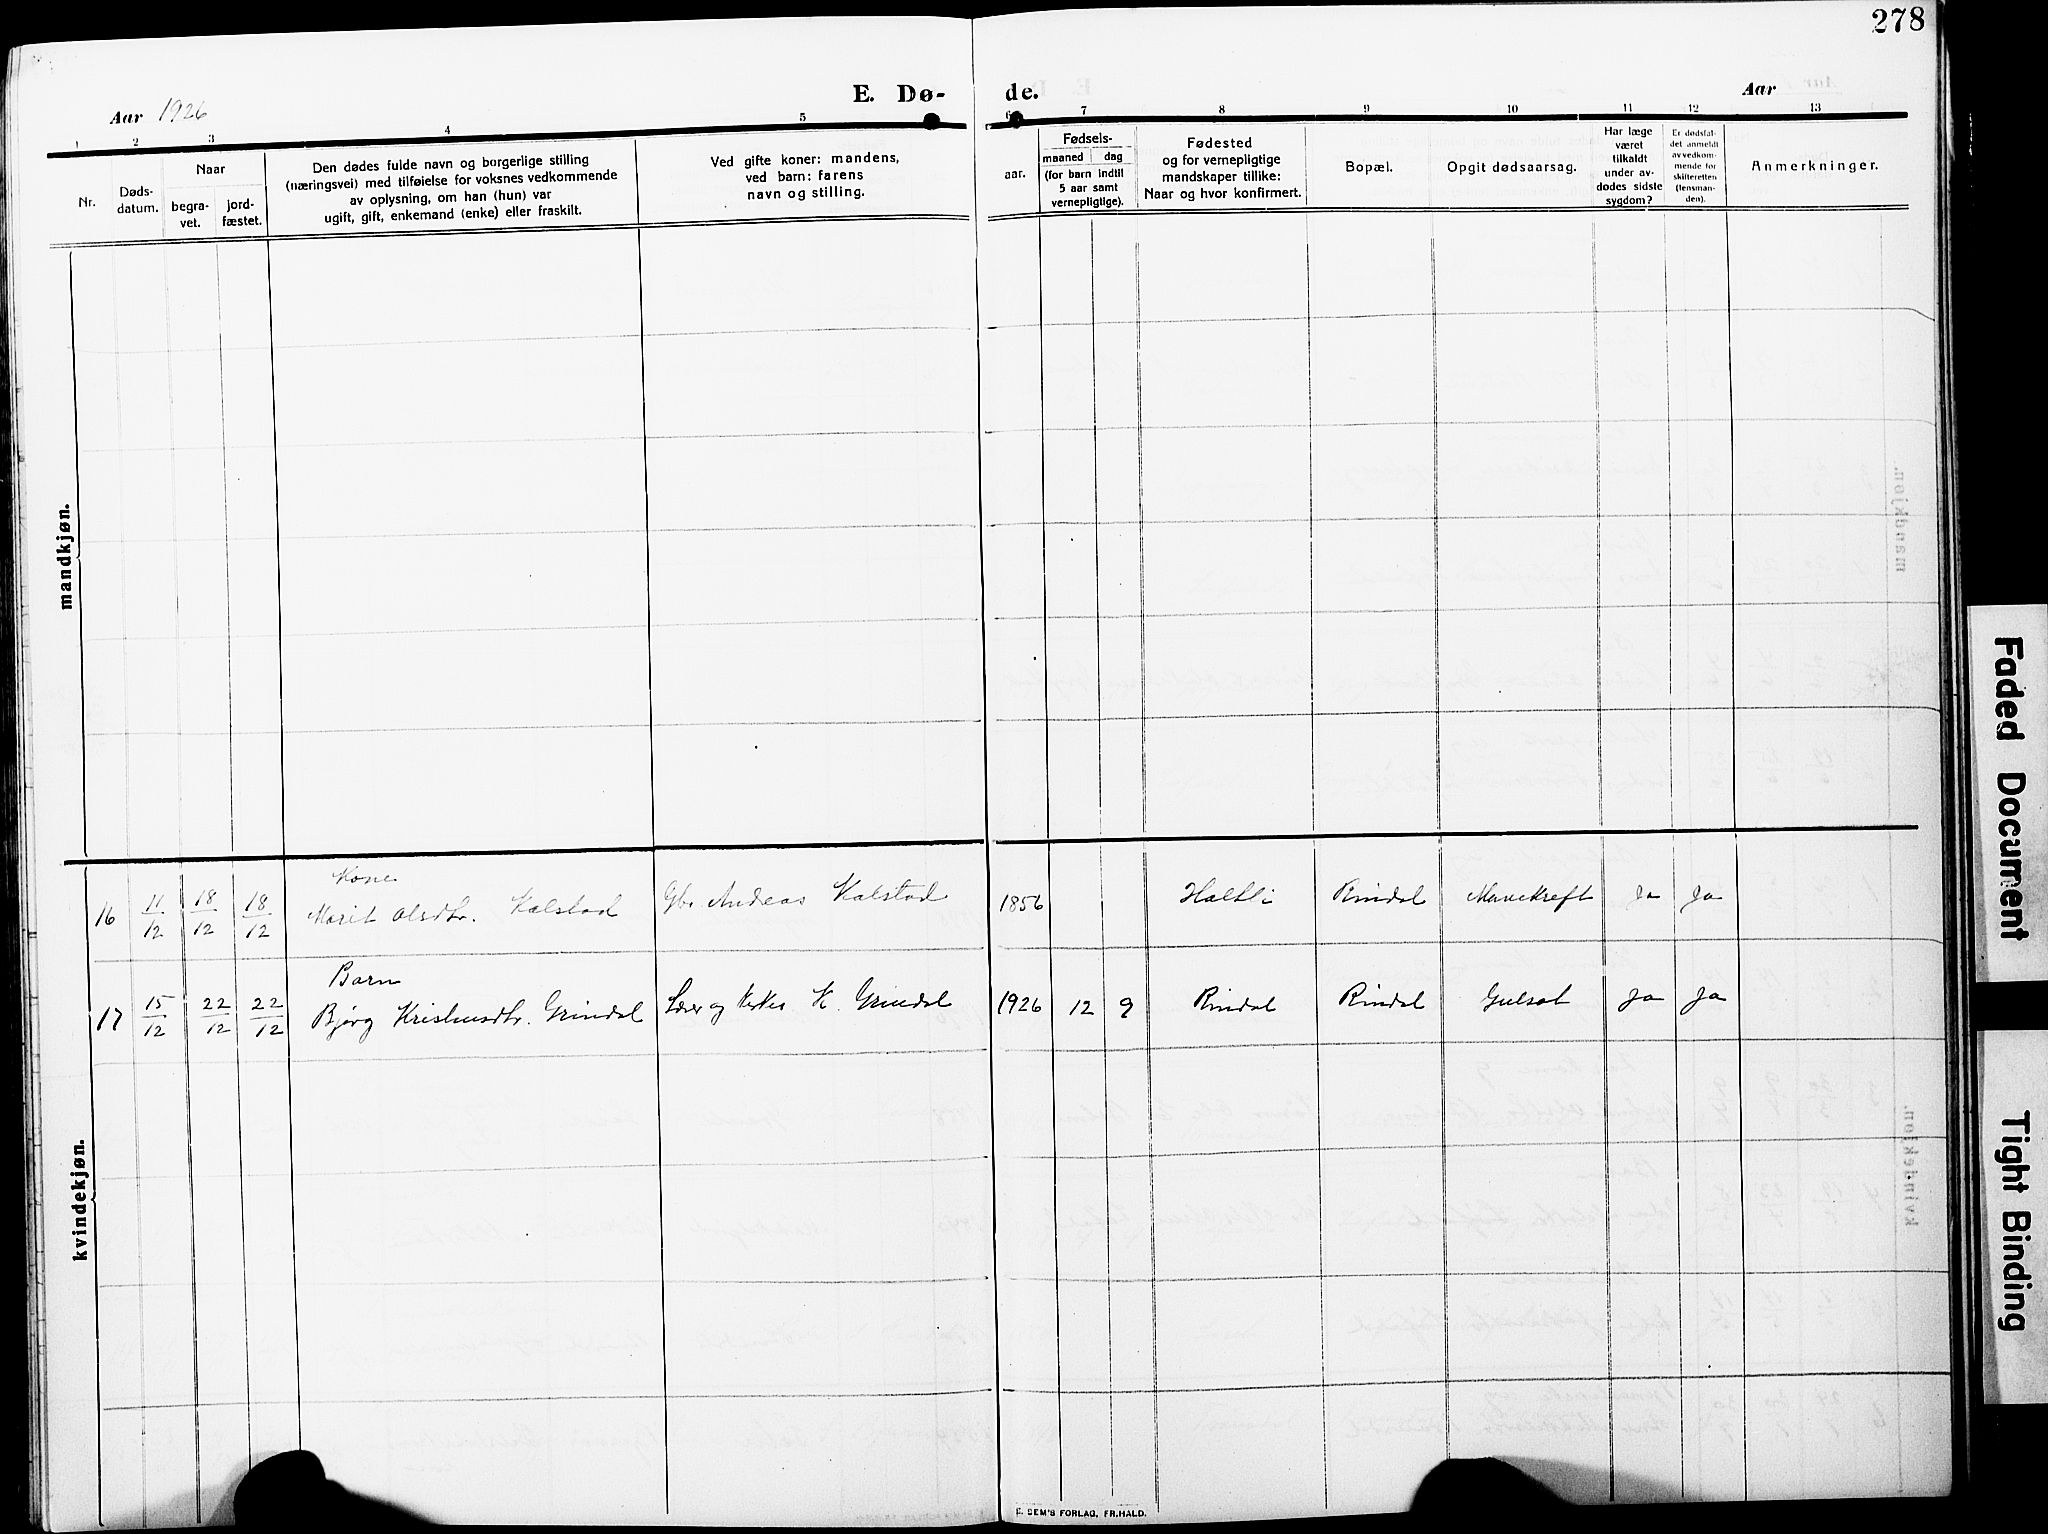 278
E. Dø-
de.
Aar 1926
Aar
1 2 3 4 5 6 7 8 9 10 11 12 13
Nr.
Døds-
datum.
Naar
begra-
vet.
jord-
fæstet.
Den dødes fulde navn og borgerlige stilling
(næringsvei) med tilføielse for voksnes vedkommende
av oplysning, om han (hun) var
ugift, gift, enkemand (enke) eller fraskilt.
Ved gifte koner: mandens,
ved barn: farens
navn og stilling.
aar.
Fødsels-
maaned dag
(for barn indtil
5 aar samt
vernepligtige).
Fødested
og for vernepligtige
mandskaper tillike:
Naar og hvor konfirmert.
Bopæl.
Opgit dødsaarsag.
Har læge
været
tilkaldt
under av-
dødes sidste
sygdom?
Er dødsfal-
det anmeldt
av vedkom-
mende for
skifteretten
(lensman-
den).
Anmerkninger.
mandkjøn.
mandkjøn.
Kone
16 11/12 18/12 18/12 Marit Olsdtr. Kalstad Gbr. Andreas Kalstad 1856 Haltli Rindal Mavekreft Ja Ja
Barn
17 15/12 22/12 22/12 Bjørg Grindal Lærer og K. Grindal 1926 12 9 Rindal Rindal Gulsot Ja Ja
kvindekjøn.
kvindekjøn.
E. SEM'S FORLAG, FR.HALD.
Faded Document
Tight Binding